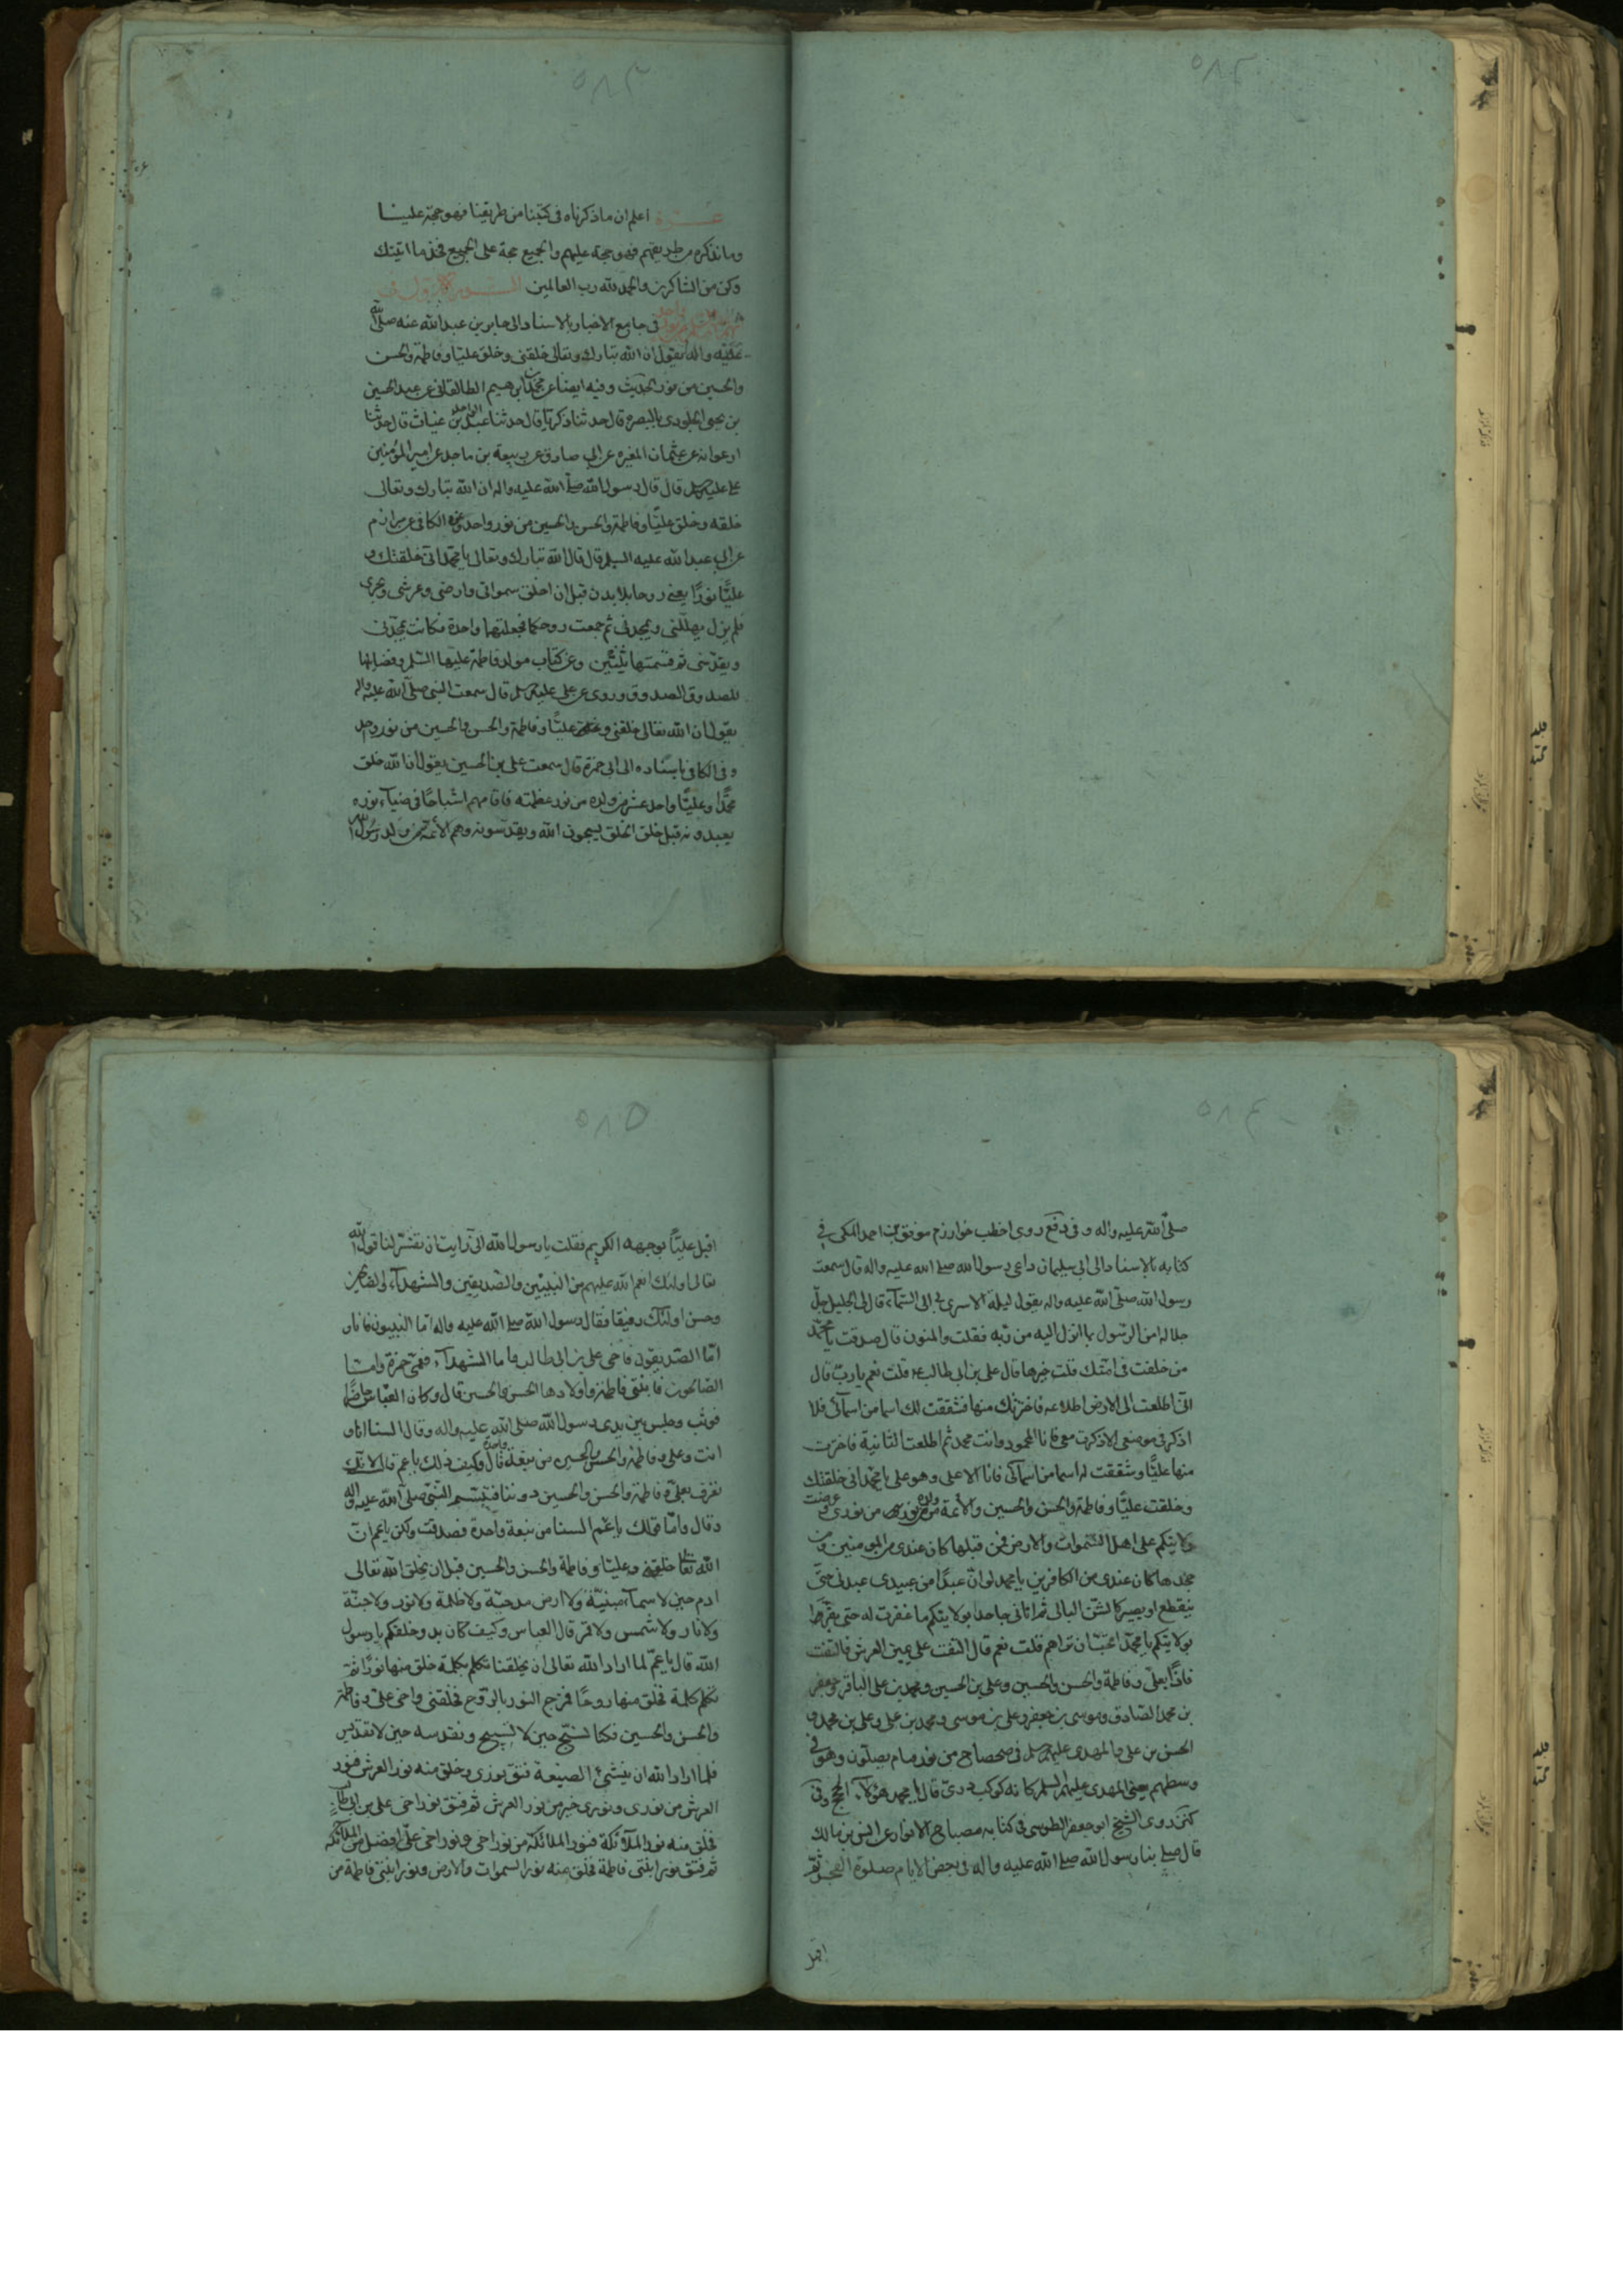 ٥٨٢
٥٨٣
اعلم ان ما ذكرناه فى كتبنا من طريقنا فهو حجة علينا
وما نذكره من طريقهم فهو حجة عليهم والجميع حجة على الجميع فخذ ما اتيتك
وكن من الشاكرين والحمد لله رب العالمين
فى جامع الاخبار بالاسناد الى جابر بن عبد الله عنه صلى الله
عليه واله يقول ان الله تبارك وتعالى خلقنى وخلق عليّا وفاطمة والحسن
والحسين من نور الحديث وفيه ايضا عن محمد بن ابرهيم الطالقانى عن عبد الحسين
بن يحيى الجلودى بالبصره قال حدثنا ذكريا قال حدثنا عبد الواحد بن غياث قال حدثنا
ابو عوانه عن عثمان المغيره عن ابى صادق عن ربيعة بن ماجد عن امير المؤمنين
على عليه السلم قال قال رسول الله صلى الله عليه واله ان الله تبارك وتعالى
خلقه وخلق عليّا وفاطمة والحسن والحسين من نور واحد وعن الكافى عن مرازم
عن ابى عبد الله عليه السلم قال قال الله تبارك وتعالى يا محمد انى خلقتك و
عليّا نورًا يعنى روحا بلا بدن قبل ان اخلق سمواتى وارضى وعرشى وبحرى
فلم يزل يهللنى ويمجدنى ثم جمعت روحكما فجعلتهما واحدة فكانت تمجدنى
ويقدسنى ثم قسمتها ثنتين وعن كتاب مولد فاطمة عليها السلم وفضايلها
للصدوق الصدوق وروى عن على عليه السلم قال سمعت النبى صلى الله عليه واله
يقول ان الله تعالى خلقنى وخلق عليّا وفاطمة والحسن والحسين من نور واحد
وفى الكافى باسناده الى ابى حمزة قال سمعت على بن الحسين يقول ان الله خلق
محمدًا وعليّا واحد عشر من ولده من نور عظمته فاقامهم اشباحًا فى ضياء نوره
يعبدونه قبل خلق الخلق يسبحون الله ويقدسونه وهم الائمة من ولد رسول الله
٥٨٤
صلى الله عليه واله وفى روى اخطب خوارزم موفق بن احمد المكى فى
كتابه بالاسناد الى ابى سليمان داعى رسول الله صلى الله عليه واله قال سمعت
رسول الله صلى الله عليه واله يقول ليلة الاسرى بى الى السماء قال لى الجليل جل
جلاله امن الرسول بما انزل اليه من ربه فقلت والمنون قال صدقت يا محمد
من خلفت فى امتك قلت خيرها قال على بن ابى طالب قلت نعم يا رب قال
انى اطلعت الى الارض اطلاعه فاخترتك منها فشققت لك اسما من اسمائى فلا
اذكر فى موضعى الا ذكرت معى فانا المحمود وانت محمد ثم اطلعت الثانية فاخترت
منها عليّا وشققت له اسما من اسمائى فانا الاعلى وهو على يا محمد انى خلقتك
وخلقت عليّا وفاطمة والحسن والحسين والائمة من ولده من نورى وعرضت
ولايتكم على اهل السموات والارض فمن قبلها كان عندى من المومنين ومن
جحدها كان عندى من الكافرين يا محمد لو ان عبدًا من عبيدى عبدنى حتى
ينقطع او يصير كالشن البالى ثم اتانى جاحدا بولايتكم ما غفرت له حتى يقر
بولايتكم يا محمد اتحب ان تراهم قلت نعم قال التفت على يمين العرش فالتفت
فاذا بعلى وفاطمة والحسن والحسين وعلى بن الحسين ومحمد بن على الباقر وجعفر
بن محمد الصادق وموسى بن جعفر وعلى بن موسى ومحمد بن على وعلى بن محمد و
الحسن بن على والمهدى عليهم السلم فى ضحضاح من نور قيام يصلون وهو فى
وسطهم يعنى المهدى عليهم السلم كانه كوكب درى قال يا محمد هؤلاء الحجج وفى
كنز روى الشيخ ابو جعفر الطوسى فى كتابه مصباح الانوار عن انس بن مالك
قال صلى بنا رسول الله صلى الله عليه واله فى بعض الايام صلوة الفجر ثم
اقبل
٥٨٥
اقبل علينا بوجهه الكريم فقلت يا رسول الله ارايت ان تفسر لنا قول الله
تعالى اولئك انعم الله عليهم من النبيين والصديقين والشهداء والصالحين
وحسن اولئك رفيقا فقال رسول الله صلى الله عليه واله اما النبيون فانا و
اما الصديقون فاخى على بن ابى طالب واما الشهداء فعمى حمزة واما
الصالحون فابنتى فاطمة واولادها الحسن والحسين قال وكان العباس حاضرا
فوثب وجلس بين يدى رسول الله صلى الله عليه واله وقال السنا انا و
انت وعلى وفاطمة والحسن والحسين من نبعة واحدة قال وكيف ذلك يا عم قال لانك
تعرف بعلى وفاطمة والحسن والحسين دوننا فتبسم النبى صلى الله عليه واله
وقال واما قولك يا عم السنا من نبعة واحدة فصدقت ولكن يا عم ان
الله تعالى خلقنى وعليّا وفاطمة والحسن والحسين قبل ان يخلق الله تعالى
ادم حين لا سماء مبنية ولا ارض مدحية ولا ظلمة ولا نور ولا جنة
ولا نار ولا شمس ولا قمر قال العباس وكيف كان بدو خلقكم يا رسول
الله قال يا عم لما اراد الله تعالى ان يخلقنا تكلم بكلمة خلق منها نورًا ثم
تكلم كلمة فخلق منها روحًا فمزج النور بالروح فخلقنى واخى على وفاطمة
والحسن والحسين فكنا نسبح حين لا تسبيح ونقدسه حين لا تقديس
فلما اراد الله ان ينشئ الصنيعة فتق نورى وخلق منه نور العرش فنور
العرش من نورى ونورى خير من نور العرش ثم فتق نور اخى على بن ابى طالب
فخلق منه نور الملائكة فنور الملائكة من نور اخى ونور اخى على افضل من الملائكة
ثم فتق نور ابنتى فاطمة فخلق منه نور السموات والارض فنور ابنتى فاطمة من